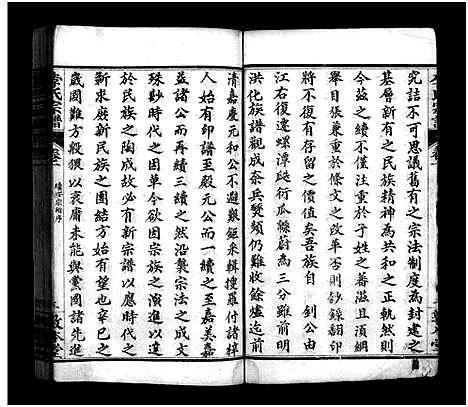 究詰不可思議舊有之宗法制度為封建之
基層新有之民族精神為共和之正軌然則
今茲之續不僅注重於子姓之蕃滋且須綱
舉目張兼重於條文之改革否則鈔錄翻印
將不復有存留之價值矣吾族自 釗公由
江右復遷螺潭瓞衍瓜緜蔚為三分雖前明
洪化族譜觀成奈兵燹頻仍難收餘燼迄前
清嘉慶元和公不避艱鉅采輯搜羅付諸梓
人始有印譜至殿元公而一續之至嘉美嘉
益諸公而再續三續之然沿襲宗法之成文
殊眇時代之因革今欲因宗族之演進以進
於民族之陶成故有新宗譜以應時代之要
新求庶新民國之團結方始有望也辛亥三
歲國難方殷毅以衰庸未能與黨國諸先進
氏宗譜
卷一
續修宗譜序
敦本堂